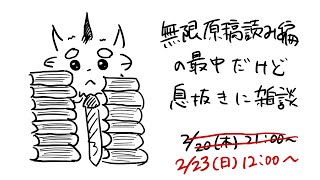 無限原稿読み編
の最中だけど
息抜きに雑談
2/20(木)21:00~
2/23(日)12:00~